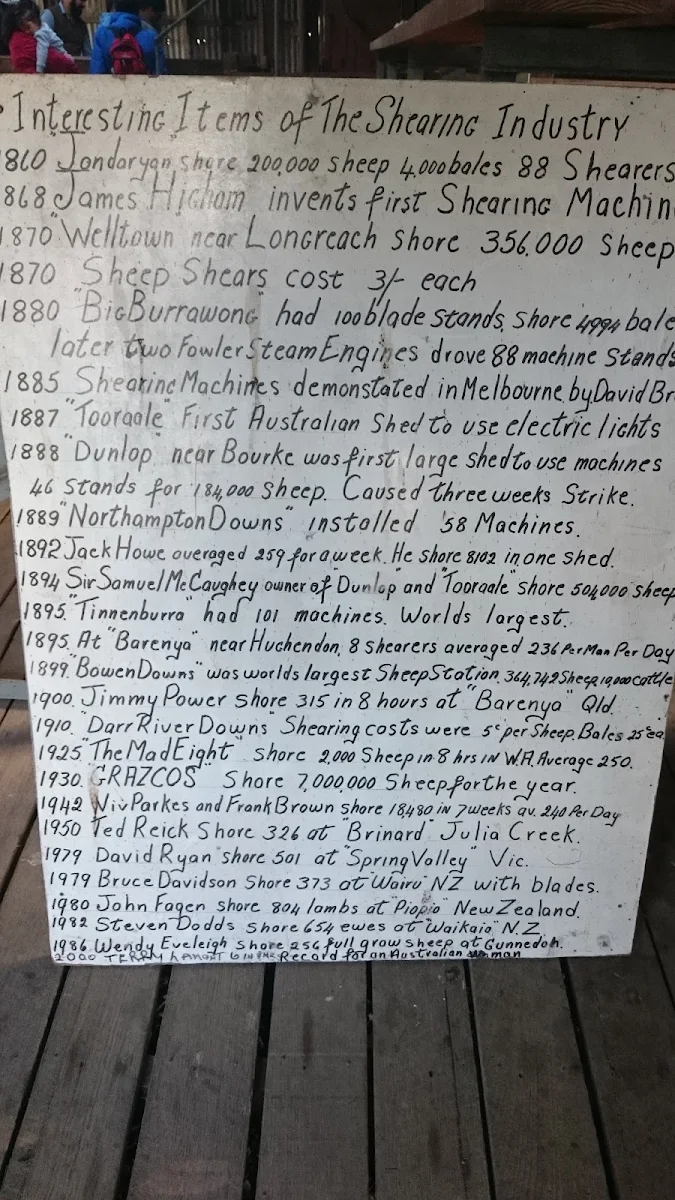 Interesting Items of The Shearing Industry
1860 Jondaryan shore 200,000 sheep 4,000 bales 88 Shearers
1868 James Higham invents first Shearing Machin
1870 "Welltown" near Longreach shore 356,000 Sheep
1870 Sheep Shears cost 3/- each
1880 "Big Burrawong" had 100 blade stands, shore 4994 bale
later two Fowler Steam Engines drove 88 machine stands
1885 Shearing Machines demonstated in Melbourne by David Br
1887 "Toorale" First Australian Shed to use electric lights
1888 "Dunlop" near Bourke was first large shed to use machines
46 Stands for 184,000 Sheep. Caused three weeks Strike.
1889 "Northampton Downs" installed 58 Machines.
1892 Jack Howe averaged 259 for a week. He shore 8102 in one shed.
1894 Sir Samuel McCaughey owner of "Dunlop" and "Toorale" shore 504,000 sheep
1895. "Tinnenburra" had 101 machines. Worlds largest.
1895. At "Barenya" near Huchendon, 8 shearers averaged 236 Per Man Per Day
1899. "Bowen Downs" was worlds largest Sheep Station, 364,742 Sheep 19,000 cattle
1900. Jimmy Power shore 315 in 8 hours at "Barenya" Qld.
1910. "Darr River Downs" Shearing costs were 5c per Sheep. Bales 25c ea
1925 "The Mad Eight" shore 2,000 Sheep in 8 hrs in W.A. Average 250.
1930. "GRAZCOS" Shore 7,000,000 Sheep for the year.
1942 Viv Parkes and Frank Brown shore 18,480 in 7 weeks av. 240 Per Day
1950 Ted Reick Shore 326 at "Brinard" Julia Creek.
1979 David Ryan shore 501 at "Spring Valley" Vic.
1979 Bruce Davidson Shore 373 at "Wairu" NZ with blades.
1980 John Fagen shore 804 lambs at "Piopio" New Zealand.
1982 Steven Dodds shore 654 ewes at "Waikaia" N.Z.
1986 Wendy Eveleigh shore 256 full grow sheep at Gunnedoh.
2000 TERRY LAMONT Record for an Australian woman